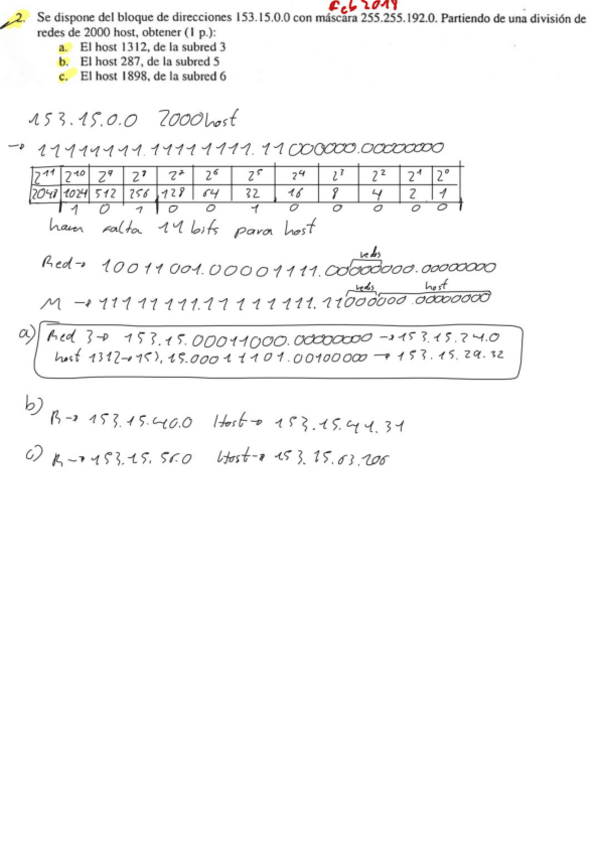 Feb 2019
2. Se dispone del bloque de direcciones 153.15.0.0 con máscara 255.255.192.0. Partiendo de una división de
redes de 2000 host, obtener (1 p.):
a. El host 1312, de la subred 3
b. El host 287, de la subred 5
c. El host 1898, de la subred 6
153.15.0.0 2000host
→ 11111111.11111111.11000000.00000000
2¹¹ 2¹⁰ 2⁹ 2⁸ 2⁷ 2⁶ 2⁵ 2⁴ 2³ 2² 2¹ 2⁰
2048 1024 512 256 128 64 32 16 8 4 2 1
1 0 1 0 0 1 0 0 0 0 0
hacen falta 11 bits para host
reds
Red→ 10011001.00001111.00000000.00000000
reds host
M →11111111.11111111.11000000.00000000
a) Red 3→ 153.15.00011000.00000000 →153.15.24.0
host 1312→153.15.00011101.00100000 → 153.15.29.32
b)
R→ 153.15.40.0 Host→ 153.15.41.31
c) R→153.15.56.0 Host→ 153.15.63.106